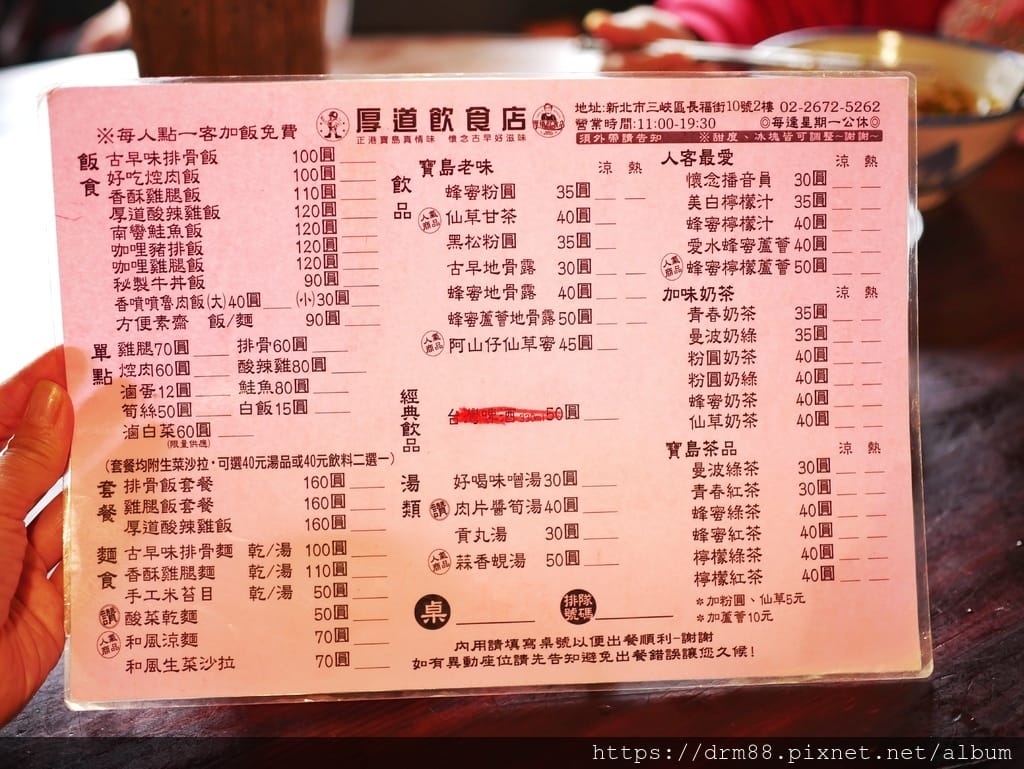 ※每人點一客加飯免費
厚道飲食店
正港寶島真情味 懷念古早好滋味
地址:新北市三峽區長福街10號2樓 02-2672-5262
營業時間:11:00-19:30 ◎每逢星期一公休◎
須外帶請告知 ※甜度、冰塊皆可調整~謝謝~
飯食
古早味排骨飯 100圓
好吃焢肉飯 100圓
香酥雞腿飯 110圓
厚道酸辣雞飯 120圓
南蠻鮭魚飯 120圓
咖哩豬排飯 120圓
咖哩雞腿飯 120圓
秘製牛丼飯 90圓
香噴噴魯肉飯(大)40圓 (小)30圓
方便素齋 飯/麵 90圓
單點
雞腿70圓 排骨60圓
焢肉60圓 酸辣雞80圓
滷蛋12圓 鮭魚80圓
筍絲50圓 白飯15圓
滷白菜60圓
(限量供應)
(套餐均附生菜沙拉,可選40元湯品或40元飲料二選一)
套餐
排骨飯套餐 160圓
雞腿飯套餐 160圓
厚道酸辣雞飯 160圓
麵食
古早味排骨麵 乾/湯 100圓
香酥雞腿麵 乾/湯 110圓
手工米苔目 乾/湯 50圓
讚 酸菜乾麵 50圓
人氣商品 和風涼麵 70圓
和風生菜沙拉 70圓
飲品
寶島老味 涼 熱
蜂蜜粉圓 35圓
人氣商品 仙草甘茶 40圓
黑松粉圓 35圓
古早地骨露 30圓
蜂蜜地骨露 40圓
蜂蜜蘆薈地骨露50圓
人氣商品 阿山仔仙草蜜45圓
經典飲品
台灣啤酒 50圓
湯類
好喝味噌湯30圓
讚 肉片醬筍湯40圓
貢丸湯 30圓
人氣商品 蒜香蜆湯 50圓
桌 排隊號碼
人客最愛 涼 熱
懷念播音員 30圓
美白檸檬汁 35圓
蜂蜜檸檬汁 40圓
愛水蜂蜜蘆薈40圓
人氣商品 蜂蜜檸檬蘆薈50圓
加味奶茶 涼 熱
青春奶茶 35圓
曼波奶綠 35圓
粉圓奶茶 40圓
粉圓奶綠 40圓
蜂蜜奶茶 40圓
仙草奶茶 40圓
寶島茶品 涼 熱
曼波綠茶 30圓
青春紅茶 30圓
蜂蜜綠茶 40圓
蜂蜜紅茶 40圓
檸檬綠茶 40圓
檸檬紅茶 40圓
*加粉圓、仙草5元
*加蘆薈10元
內用請填寫桌號以便出餐順利-謝謝
如有異動座位請先告知避免出餐錯誤讓您久候!
https://drm88.pixnet.net/album